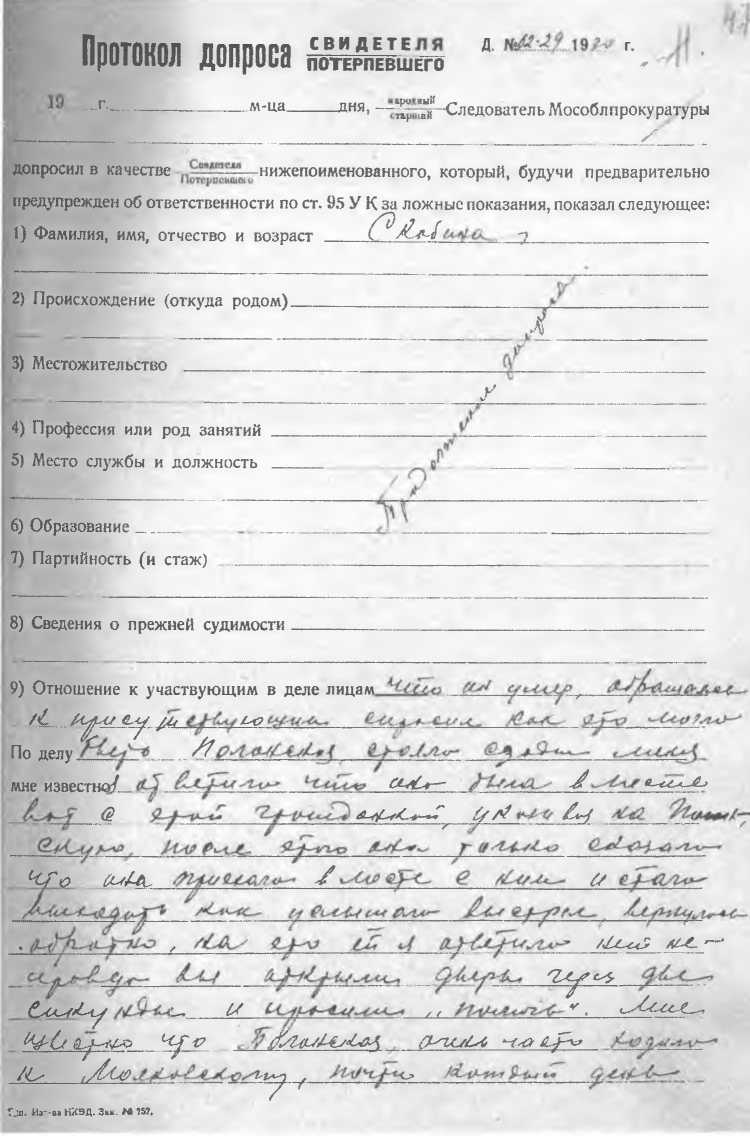 47
Протокол допроса СВИДЕТЕЛЯ ПОТЕРПЕВШЕГО Д. № 02-29 1930 г.
19 г. м-ца дня, народный старший Следователь Мособлпрокуратуры
допросил в качестве Свидетеля Потерпевшего нижепоименованного, который, будучи предварительно
предупрежден об ответственности по ст. 95 УК за ложные показания, показал следующее:
1) Фамилия, имя, отчество и возраст Скобина
2) Происхождение (откуда родом)
3) Местожительство
4) Профессия или род занятий
5) Место службы и должность
Продолжение допроса.
6) Образование
7) Партийность (и стаж)
8) Сведения о прежней судимости
9) Отношение к участвующим в деле лицам что он умер, обращаясь
к присутствующим спросил как это могло
По делу быть Полонская стояла сзади меня
мне известно: я ответила что она была вместе
вот с этой гражданкой, указывая на Полон-
скую, после этого она только сказала
что она приехала вместе с ним и стала
выходить как услышала выстрел, вернулась
обратно, на это ей я ответила нет не-
правда вы открыли дверь через две
секунды и просили „помочь". Мне
известно что Полонская, очень часто ходила
к Маяковскому, почти каждый день
Тип. Из-ва НКВД. Зак. № 752.